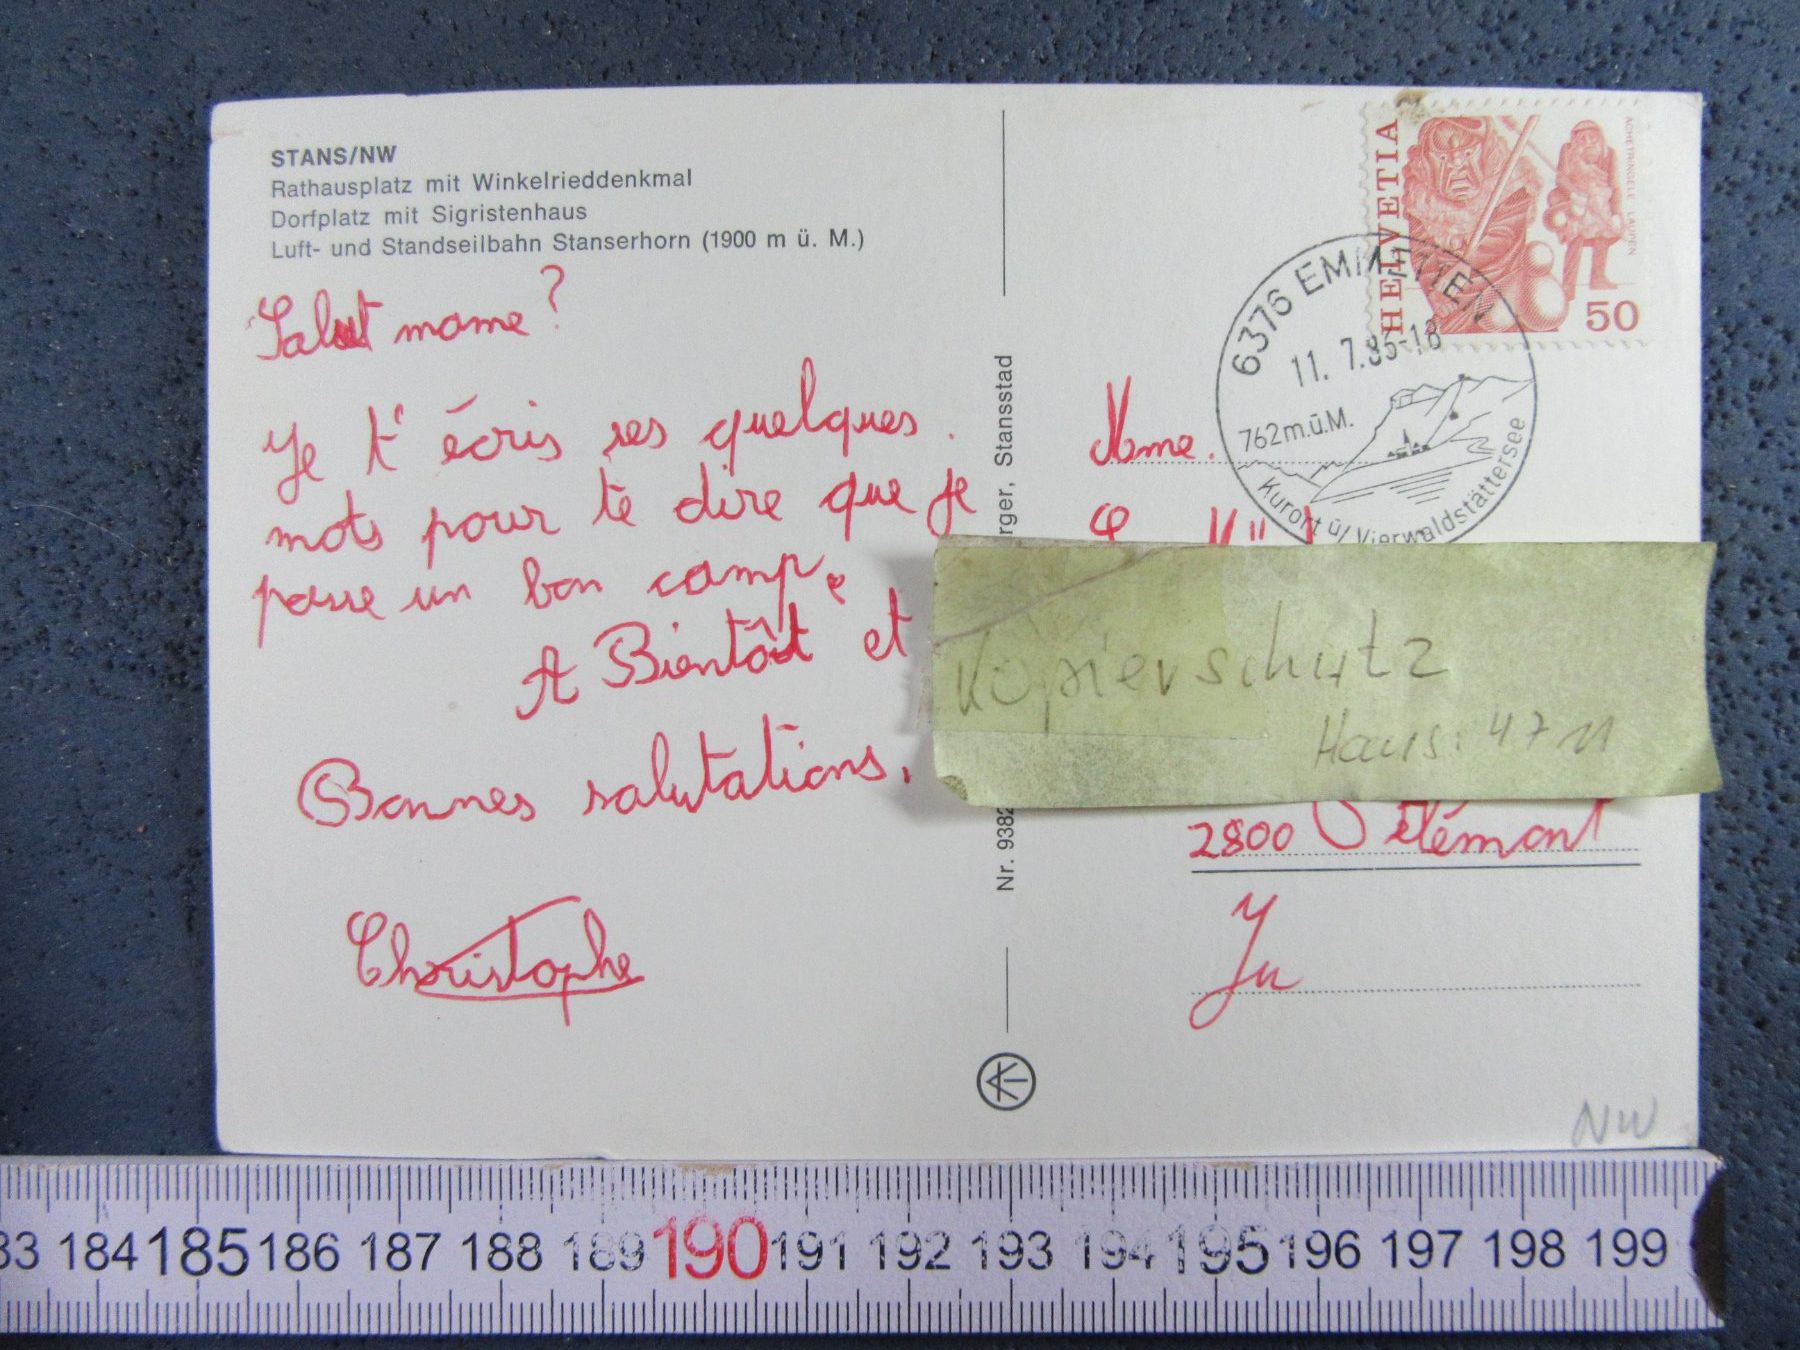 STANS/NW
Rathausplatz mit Winkelrieddenkmal
Dorfplatz mit Sigristenhaus
Luft- und Standseilbahn Stanserhorn (1900 m ü. M.)
Salut mame?
Je t'écris ses quelques.
mots pour te dire que je
passe un bon campe
A Bientôt et
Bonnes salutations.
Christophe
Nr. 9382
rger, Stansstad
HELVETIA
ACHETRINGELE LAUPEN
50
6376 EMMETTEN
11. 7.85-18
762m.ü.M.
Kurort ü/Vierwaldstättersee
Mme.
Kopierschutz
Haus: 4711
2800 Délémont
Ju
NW
83 184 185 186 187 188 189 190 191 192 193 194 195 196 197 198 199